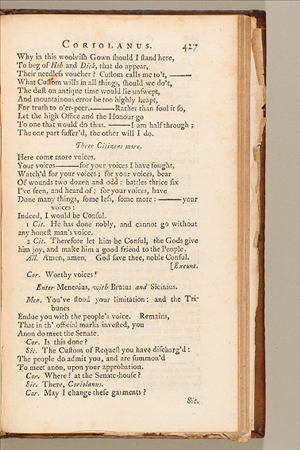 CORIOLANUS. 427
Why in this woolviſh Gown ſhould I ſtand here,
To beg of Hob and Dick, that do appear,
Their needleſs voucher? Cuſtom calls me to't, ——
What Cuſtom wills in all things, ſhould we do't,
The duſt on antique time would lie unſwept,
And mountainous error be too highly heapt,
For truth to o'er-peer.——Rather than fool it ſo,
Let the high Office and the Honour go
To one that would do thus.——I am half through;
The one part ſuffer'd, the other will I do.
Three Citizens more.
Here come more voices.
Your voices——for your voices I have fought,
Watch'd for your voices; for your voices, bear
Of wounds two dozen and odd: battles thrice ſix
I've ſeen, and heard of; for your voices, have
Done many things, ſome leſs, ſome more:——your
voices:
Indeed, I would be Conſul.
1 Cit. He has done nobly, and cannot go without
any honeſt man's voice.
2 Cit. Therefore let him be Conſul, the Gods give
him joy, and make him a good friend to the People.
All. Amen, amen. God ſave thee, noble Conſul.
[Exeunt.
Cor. Worthy voices!
Enter Menenius, with Brutus and Sicinius.
Men. You've ſtood your limitation: and the Tri-
bunes
Endue you with the people's voice. Remains,
That in th' official marks inveſted, you
Anon do meet the Senate.
Cor. Is this done?
Sic. The Cuſtom of Requeſt you have diſcharg'd:
The people do admit you, and are ſummon'd
To meet anon, upon your approbation.
Cor. Where? at the Senate-houſe?
Sic. There, Coriolanus.
Cor. May I change theſe garments?
Sic.